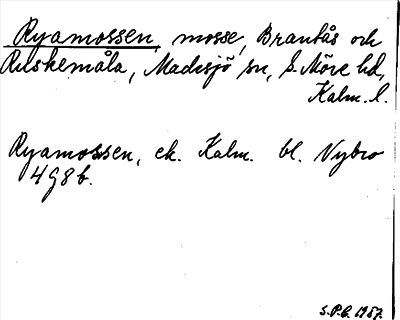 Ryamossen, mosse, Brantås och
Ruskemåla, Madesjö sn, S. Möre hd,
Kalm. l.
Ryamossen, ek. Kalm. bl. Nybro
4 G 8 b.
S.P.G. 1957.